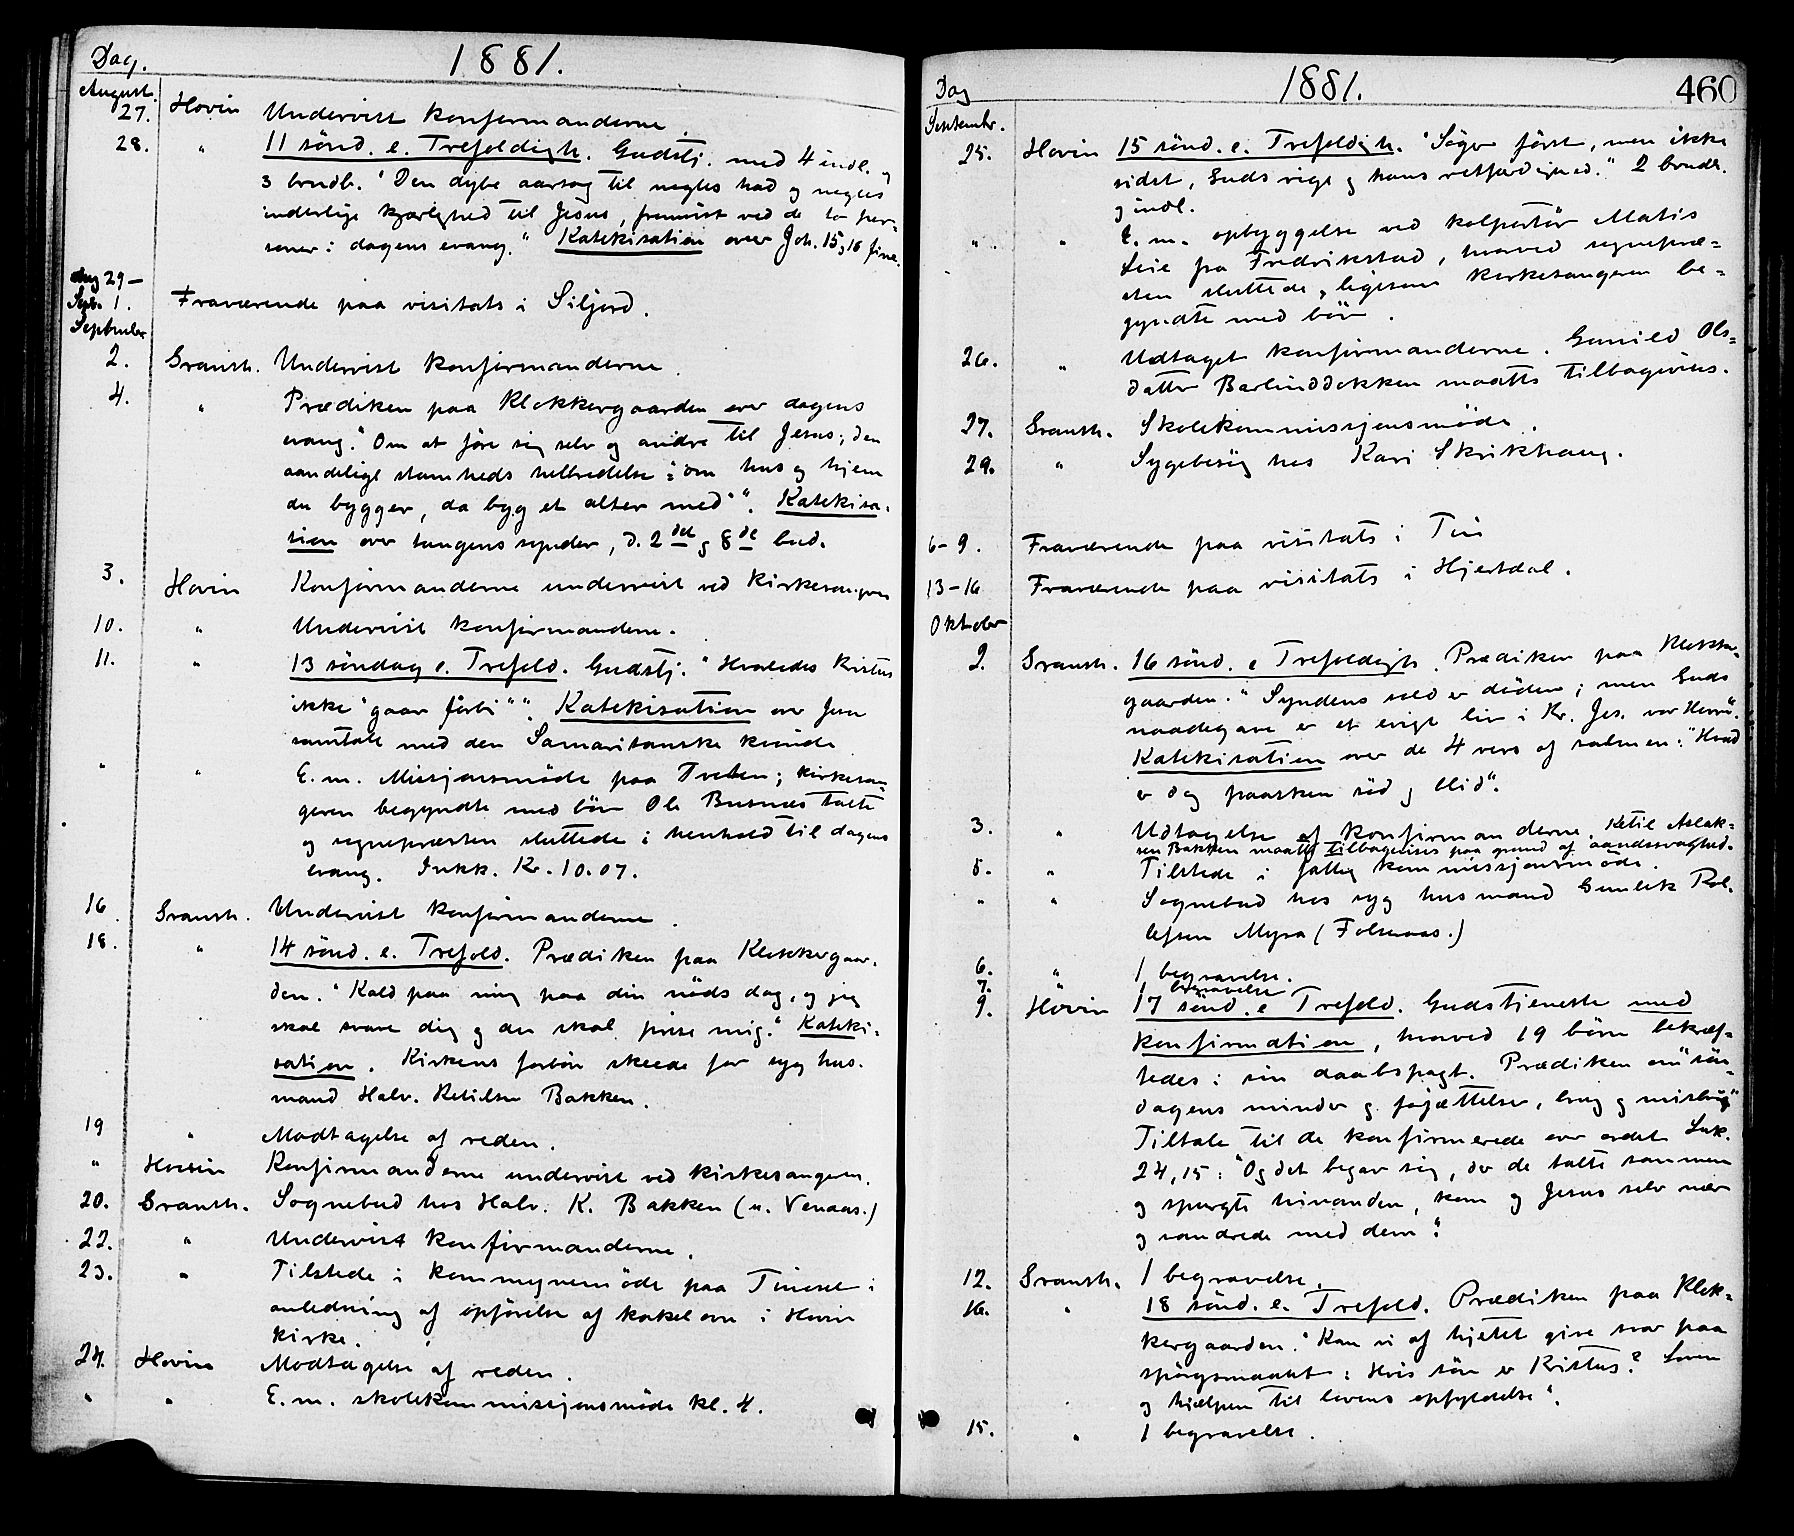 Dag. 1881.
August.
27. Hovin Undervist konfirmanderne.
28. " 11 sönd. e. Trefoldigh. Gudstj. med 4 indl. og
3 brudb. "Den dybe aarsag til nogles had og nogles
inderlige kjærlighed til Jesus, fremvist ved de to per-
soner i dagens evang." Katekisation over Joh. 15 og 16 fine.
Aug 29 –
Sept. 1. Fraværende paa visitats i Siljord.
September
2. Gransh. Undervist konfirmanderne.
4. " Prædiken paa Klokkergaarden over dagens
evang. "Om at före sig selv og andre til Jesus; den
aandelige stumheds helbredelse: "om hus og hjem
du bygger, da byg et alter med"". Katekisa-
tion over tungens synder, d. 2det og 8de bud.
3. Hovin Konfirmanderne undervist ved kirkesangeren
10. " Undervist konfirmanderne.
11. " 13 söndag e. Trefold. Gudstj. "Hvorledes Kristus
ikke "gaar forbi"". Katekisation over Jesu
samtale med den Samaritanske kvinde
" " E. m. Missjonsmöde paa Tveten; kirkesan-
geren begyndte med bön Ole Busnes talte
og sognepræsten sluttede i henhold til dagens
evang. Inkk. Kr. 10.07.
16. Gransh. Undervist konfirmanderne.
18. " 14 sönd. e. Trefold. Prædiken paa Klokkergaar-
den. "Kald paa mig paa din nöds dag, og jeg
skal svare dig og du skal prise mig." Kateki-
sation. Kirkens forbön skeede for syg hus-
mand Halv. Ketilsen Bakken.
19 " Modtagelse af reden.
" Hovin Konfirmanderne undervist ved kirkesangeren.
20. Gransh. Sognebud hos Halv. K. Bakken (u. Venaas.)
22. " Undervist konfirmanderne.
23. " Tilstede i kommunemöde paa Tinoset i
anledning af opförelse af kakelovn i Hovin
kirke.
24. Hovin Modtagelse af reden.
" " E. m. skolekommissjonsmöde kl. 4.
Dag 1881. 460
Septembr.
25. Hovin 15 sönd. e. Trefoldigh. "Söger först, men ikke
sidst, Guds rige og hans retfærdighed." 2 brudb.
og indl.
" " E. m. opbyggelse ved kolportör Matis
Leie pa Fredrikstad, hvorved sognepræ-
sten sluttede, ligesom kirkesangeren be-
gyndte med bön.
26. " Udtaget konfirmanderne. Gunild Ols-
datter Barlinddokken maatte tilbagevises.
27. Gransh. Skolekommissjonsmöde.
29. " Sygebesög hos Kari Skrikhaug.
6–9. Fraværende paa visitats i Tin
13–16 Fraværende paa visitats i Hjertdal.
Oktober
2. Gransh. 16 sönd. e Trefoldigh. Prædiken paa Klokker-
gaarden. "Syndens sold er döden; men Guds
naadegave er et evigt liv i Kr. Jes. vor Herre".
Katekisation over de 4 vers af salmen: "Hvad
er dog paasken söd og blid".
3. " Udtagelse af konfirmanderne. Ketil Aslak-
sen Bakken maatte tilbagevises paa grund af aandssvaghed.
5. " Tilstede i fattigkommissjonsmöde.
" " Sognebud hos syg husmand Gunleik Rol-
lefsen Myra (Folsenaas.)
6. " 1 begravelse.
7. 1 begravelse
9. Hovin 17 sönd. e Trefold. Gudstjeneste med
konfirmation, hvorved 19 börn bekræf-
tedes i sin daabspagt. Prædiken om "sön-
dagens minder og forjættelser, brug og misbrug"
Tiltale til de konfirmerede over ordet Luk.
24,15: "Og det begav sig, der de talte sammen
og spurgte hinanden, kom og Jesus selv nær
og vandrede med dem".
12. Gransh. 1 begravelse.
16. " 18 sönd. e. Trefold. Prædiken paa Klok-
kergaarden. "Kan vi af hjertet give svar paa
spörgsmaalet: Hvis sön er Kristus? Loven
og hjælpen til lovens opfyldelse".
15. " 1 begravelse.